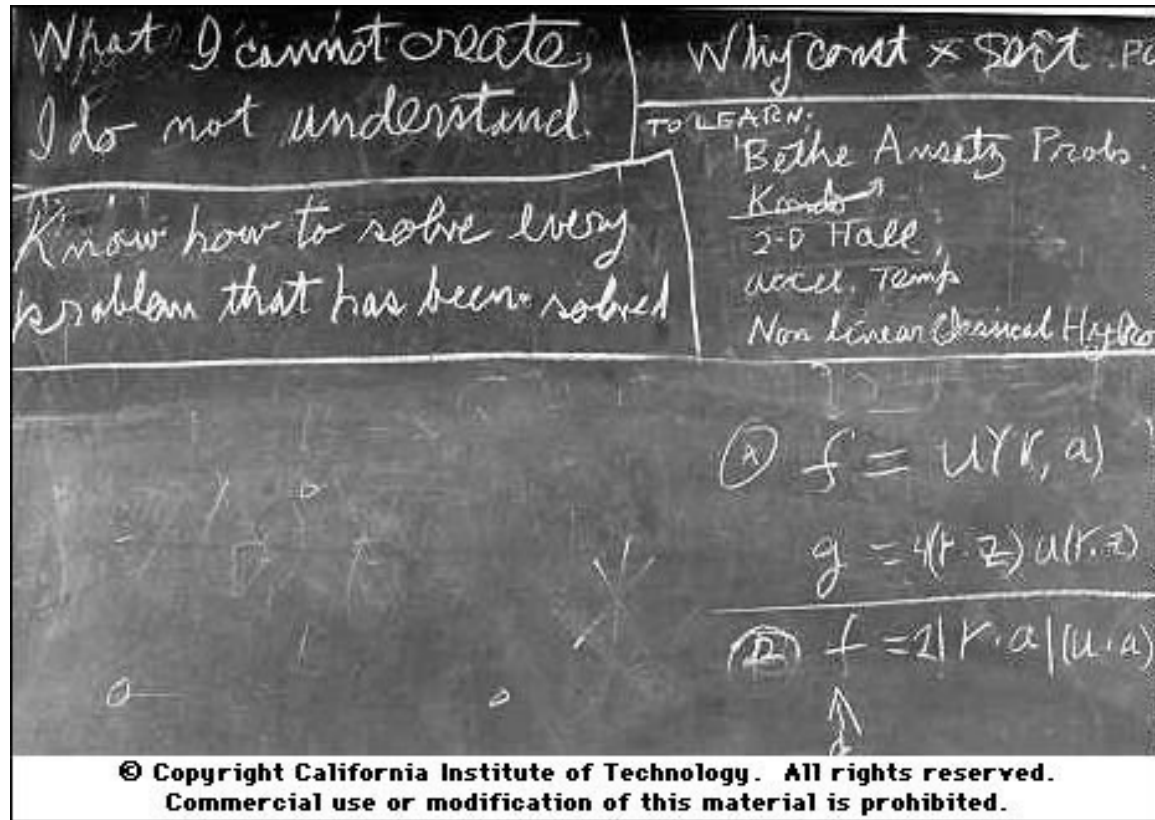 What I cannot create,
I do not understand.
Know how to solve every
problem that has been solved
Why const × sort . PO
TO LEARN:
Bethe Ansatz Probs.
Kondo
2-D Hall
accel. Temp
Non linear Classical Hydro
(A) f = u(r, a)
g = 4(r·z) u(r·z)
f = 2|r·a|(u·a)
© Copyright California Institute of Technology. All rights reserved.
Commercial use or modification of this material is prohibited.